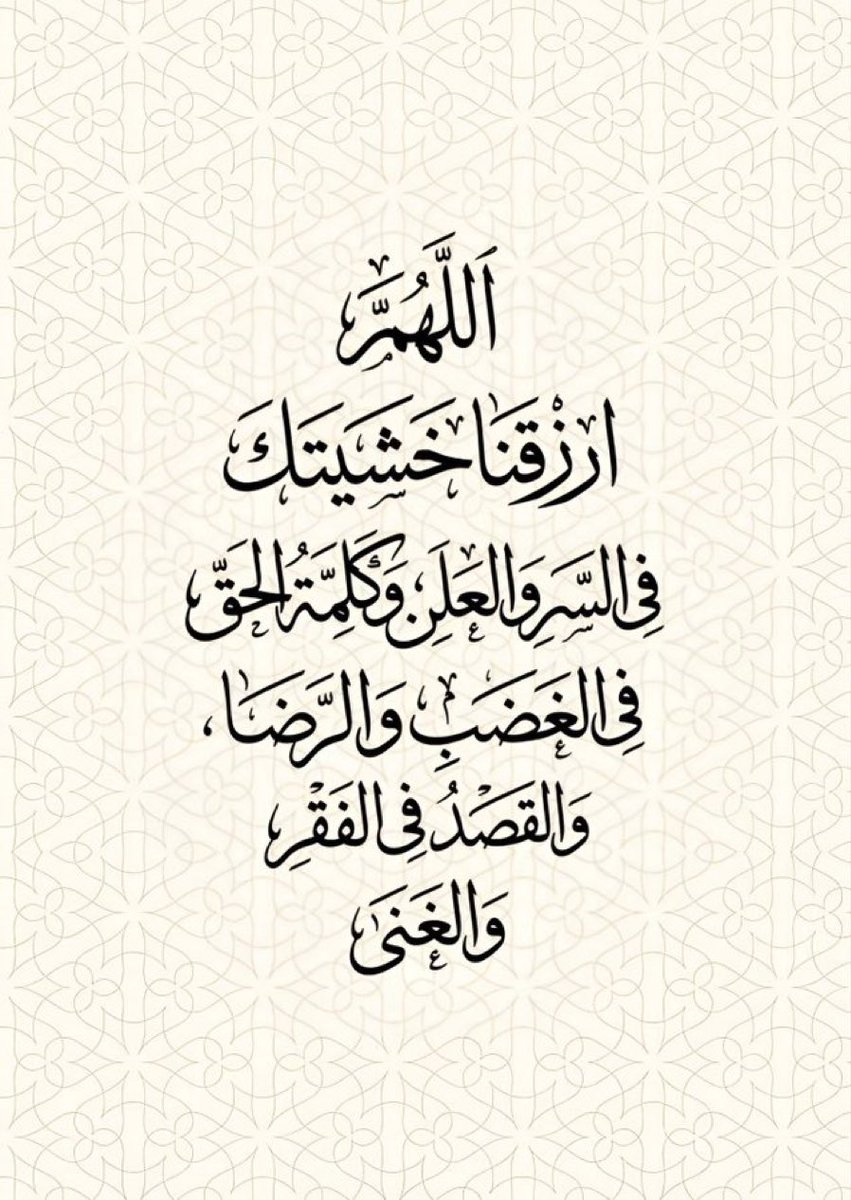 اَللَّهُمَّ
ارْزُقْنَا خَشَيَتَكَ
فِي السَّرِ وَالعَلَنِ وَكَلِمَّةُ الحَقَّ
فِي الغَضَبِ وَالرَّضَا،
وَالقَصْدُ فِي الفَقْرِ
وَالغَنَى